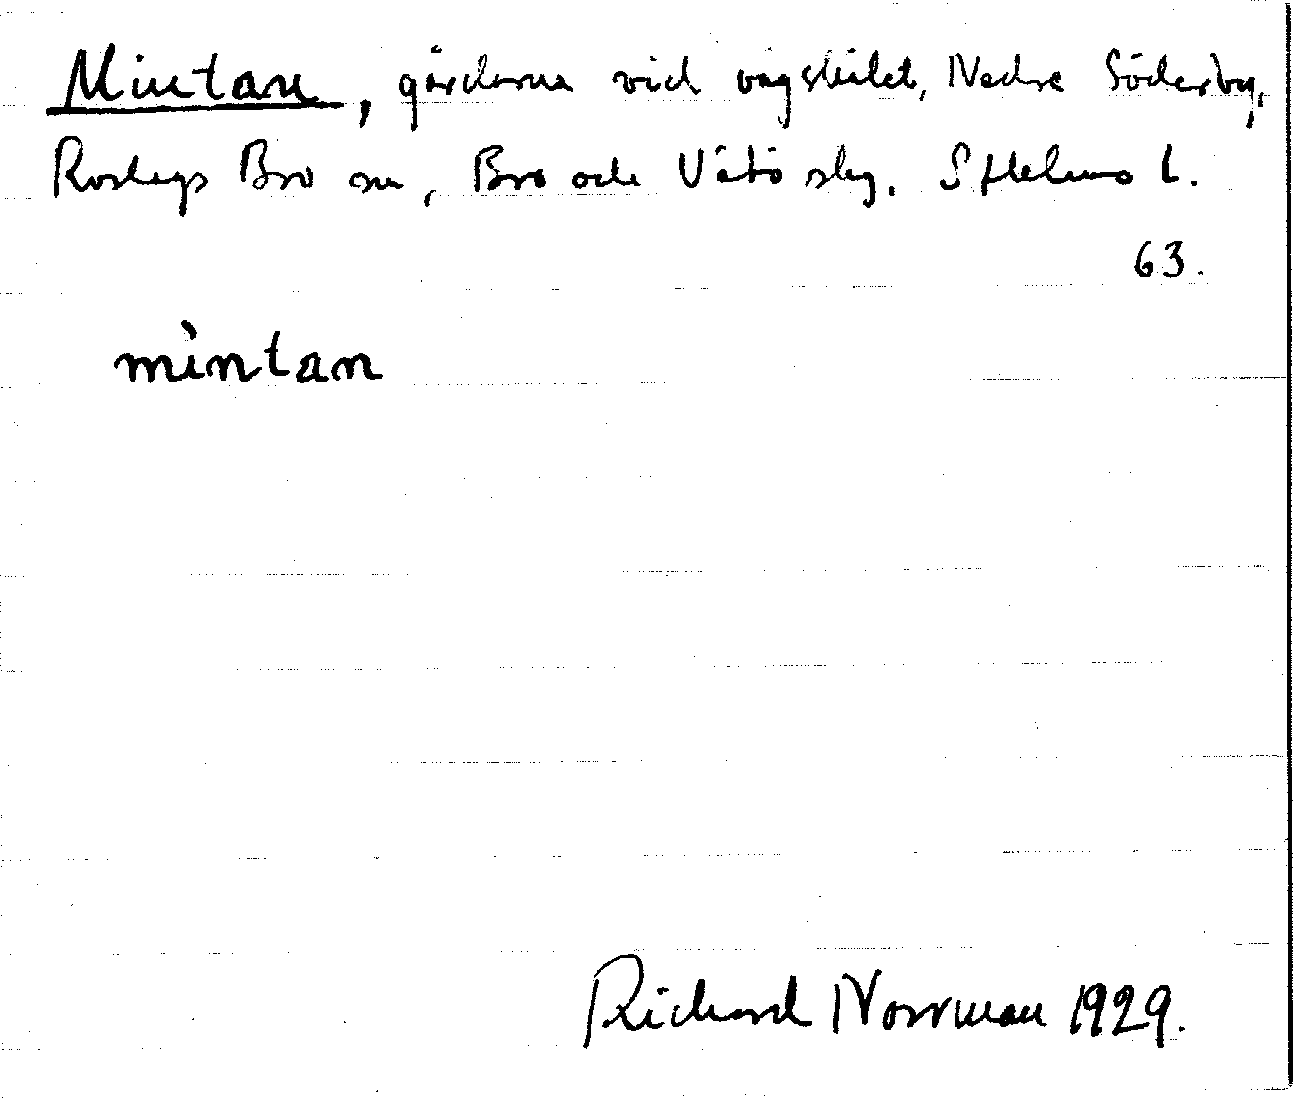 Mintan, gårdarna vid vägskälet, Nedre Söderby,
Roslags Bro sn, Bro och Vätö skg. Sthlms l.
63.
mìntan
Richard Norrman 1929.